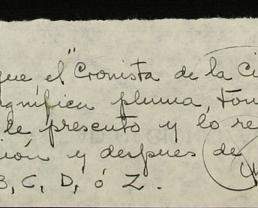 que el "Cronista de la Ci
agnífica pluma, tom
le presento y lo re
ión y despues de
B, C, D, ó Z.